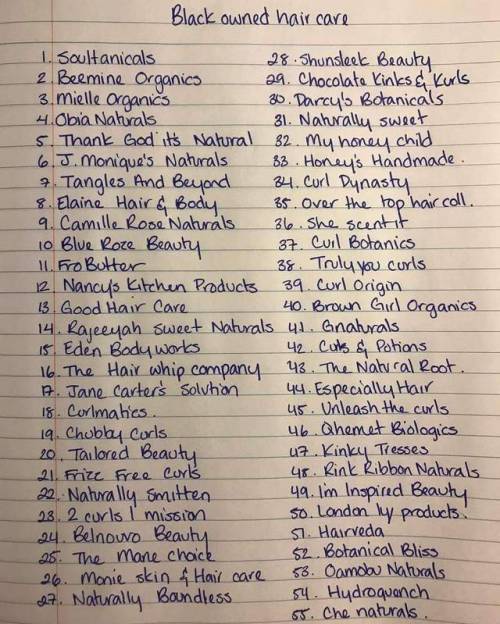 Black owned hair care
1. Soultanicals
2. Beemine Organics
3. Mielle Organics
4. Obia Naturals
5. Thank God it's Natural
6. J. Monique's Naturals
7. Tangles And Beyond
8. Elaine Hair & Body
9. Camille Rose Naturals
10. Blue Roze Beauty
11. Fro Butter
12. Nancy's Kitchen Products
13. Good Hair Care
14. Rajeeyah Sweet Naturals
15. Eden Body works
16. The Hair whip company
17. Jane Carter's Solution
18. Curlmatics.
19. Chubby Curls
20. Tailored Beauty
21. Frizz Free Curls
22. Naturally Smitten
23. 2 curls 1 mission
24. Belnouvo Beauty
25. The Mane choice
26. Monie skin & Hair care
27. Naturally Boundless
28. Shunsleek Beauty
29. Chocolate Kinks & Kurls
30. Darcy's Botanicals
31. Naturally sweet
32. My honey child
33. Honey's Handmade.
34. Curl Dynasty
35. Over the top hair coll.
36. She scent it
37. Curl Botanics
38. Truly you curls
39. Curl Origin
40. Brown Girl Organics
41. Gnaturals
42. Cuts & Potions
43. The Natural Root.
44. Especially Hair
45. Unleash the curls
46. Qhemet Biologics
47. Kinky Tresses
48. Rink Ribbon Naturals
49. I'm Inspired Beauty
50. London ly products.
51. Hairveda
52. Botanical Bliss
53. Oamobu Naturals
54. Hydroquench
55. Che naturals.